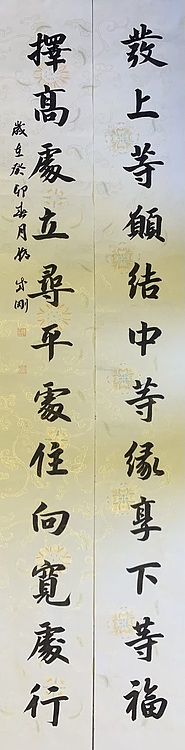 發上等願結中等緣享下等福
擇高處立尋平處住向寬處行
歲在癸卯春月